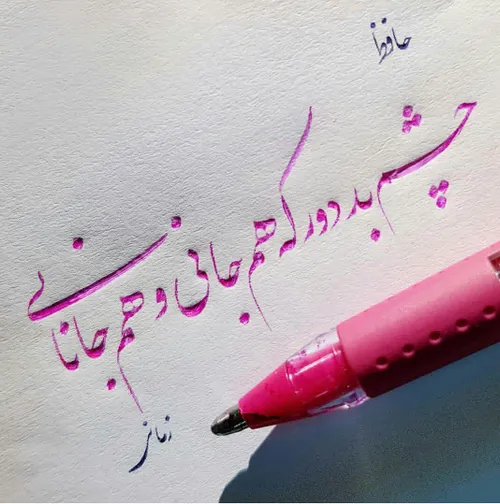 حافظ
چشم بد دور که هم جانی و هم جانانی